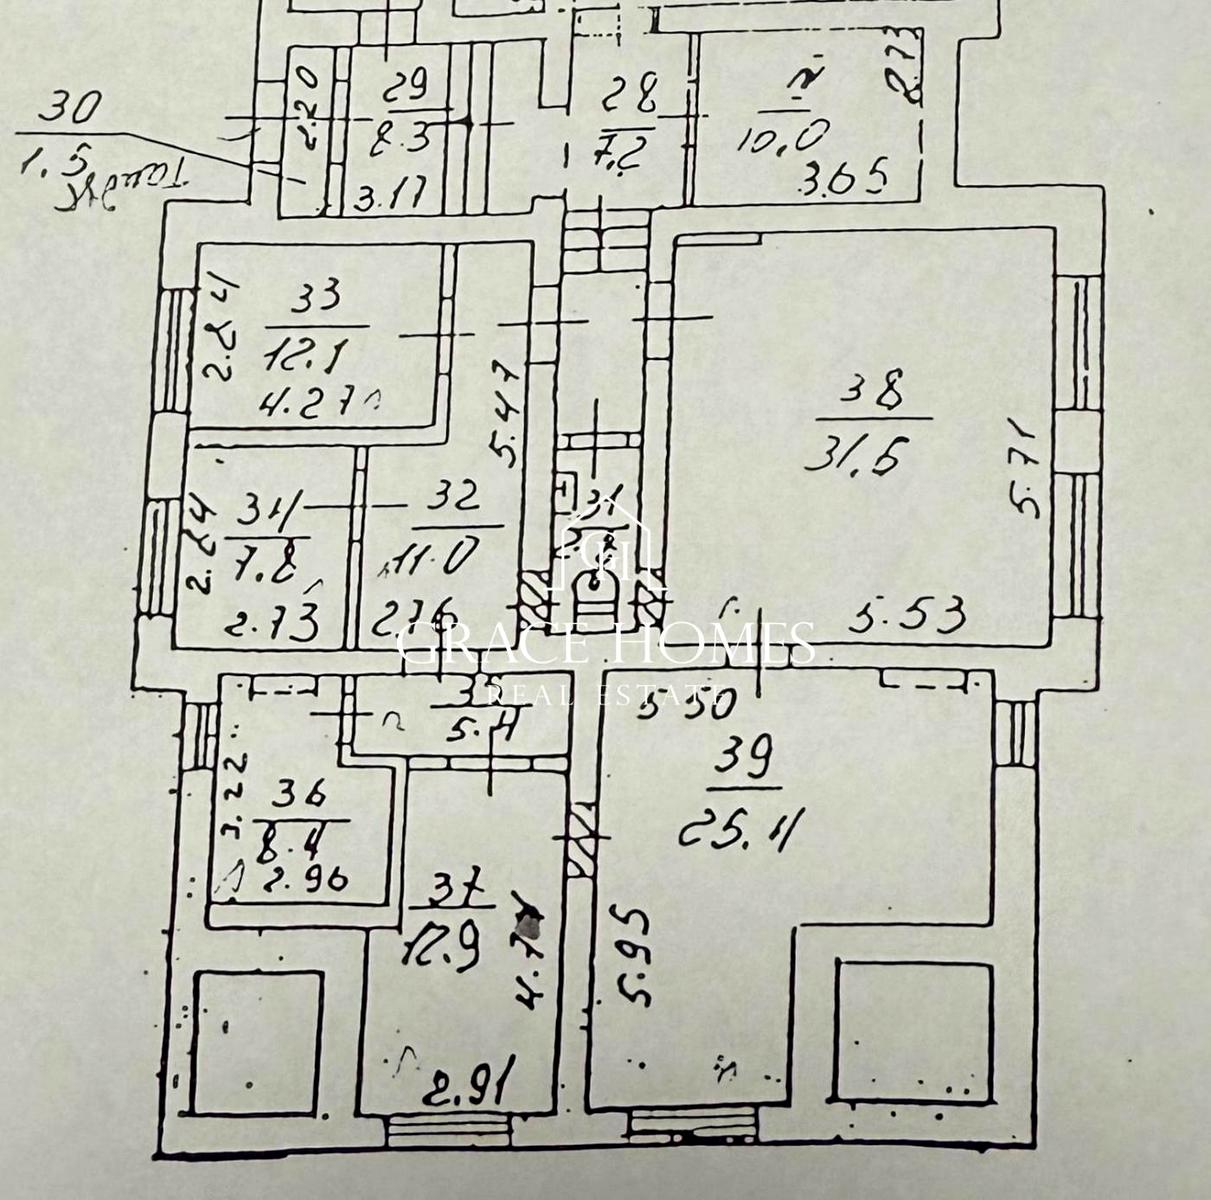 30
1.5
2.20
29
8.3
3.17
28
7.2
10.0
3.65
2.73
33
12.1
4.27
2.84
34
7.8
2.73
2.84
32
11.0
2.76
5.47
31
38
31.6
5.71
5.53
GRACE HOMES
REAL ESTATE
35
5.4
36
8.4
2.96
3.22
37
12.9
2.91
5.50
39
25.4
5.95